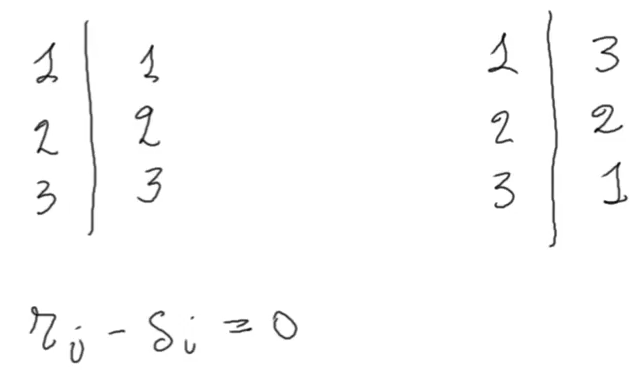 1 | 1
2 | 2
3 | 3
1 | 3
2 | 2
3 | 1
r_i - s_i = 0